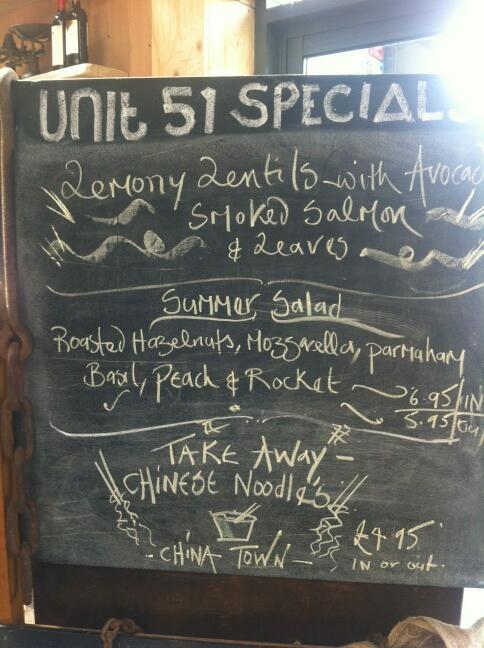 UNIT 51 SPECIALS
Lemony Lentils with Avocad
Smoked Salmon
& Leaves
Summer Salad
Roasted Hazelnuts, Mozzarella, parmaham
Basil, Peach & Rocket
6.95 IN
5.95 OU
TAKE AWAY -
CHINESE NOODLES
- CHINA TOWN -
£4.95
IN or out.